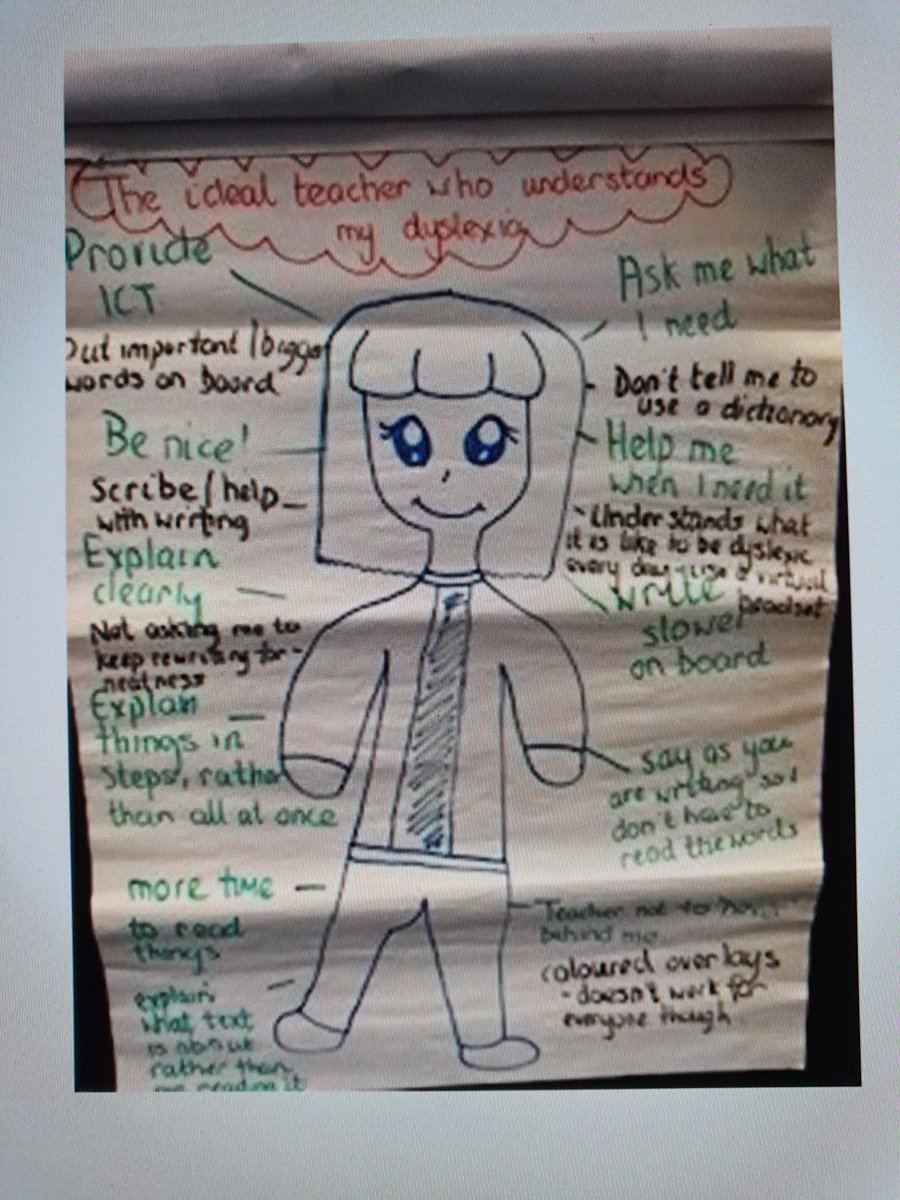 The ideal teacher who understands
my dyslexia
Provide
ICT
Put important / bigger
words on board
Be nice!
Scribe / help
with writing
Explain
clearly
Not asking me to
keep rewriting for
neatness
Explain
things in
steps, rather
than all at once
more time
to read
things
explain
what text
is about
rather than
me reading it
Ask me what
I need
Don't tell me to
use a dictionary
Help me
when I need it
- Understands what
it is like to be dyslexic
every day - use a virtual
headset
Write
slower
on board
say as you
are writing so I
don't have to
read the words
Teacher not to hover
behind me
coloured overlays
- doesn't work for
everyone though